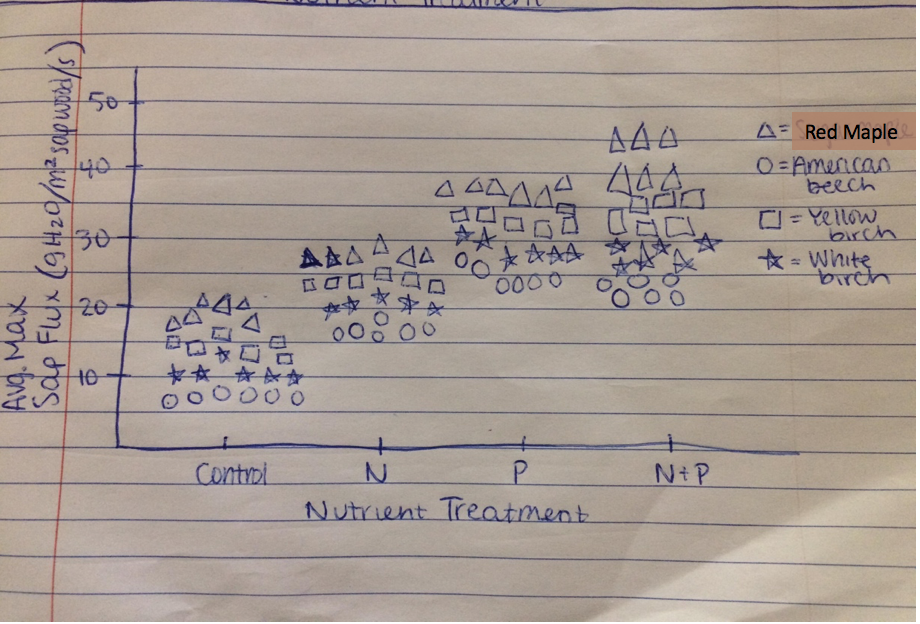 Nutrient Treatment
Avg. Max
Sap Flux (gH2O/m² sapwood/s)
50
40
30
20
10
Control
N
P
N+P
Nutrient Treatment
△ = Red Maple
○ = American
beech
□ = Yellow
birch
★ = White
birch